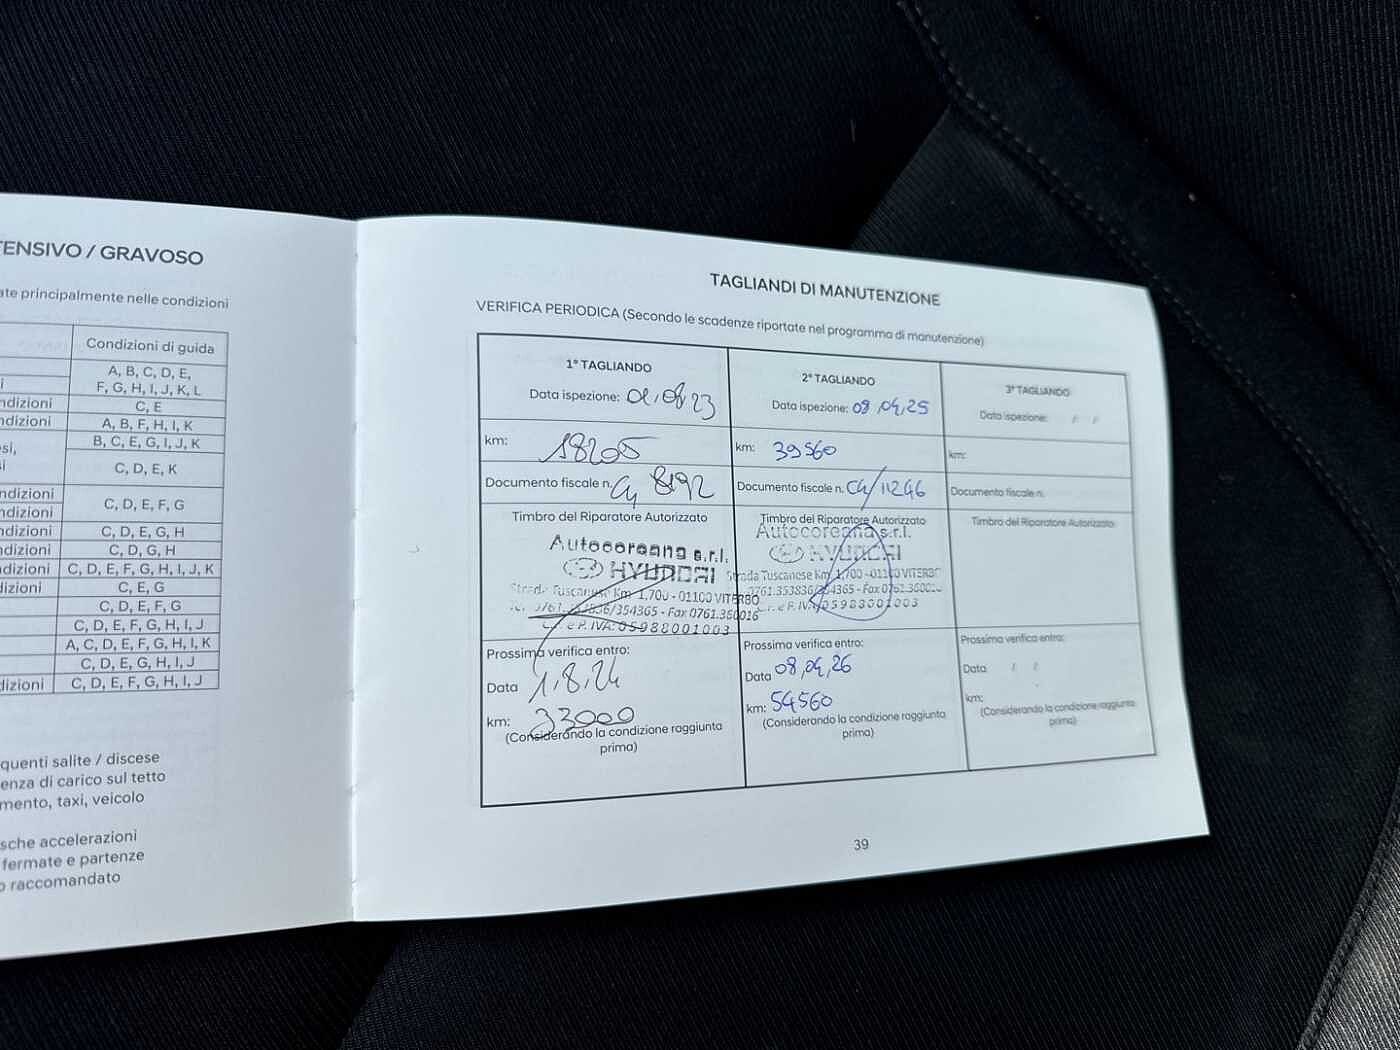 TENSIVO / GRAVOSO
ate principalmente nelle condizioni
Condizioni di guida
A, B, C, D, E,
i F, G, H, I, J, K, L
ndizioni C, E
ndizioni A, B, F, H, I, K
si, B, C, E, G, I, J, K
i C, D, E, K
ndizioni
ndizioni C, D, E, F, G
ndizioni C, D, E, G, H
ndizioni C, D, G, H
ndizioni C, D, E, F, G, H, I, J, K
dizioni C, E, G
C, D, E, F, G
C, D, E, F, G, H, I, J
A, C, D, E, F, G, H, I, K
C, D, E, G, H, I, J
dizioni C, D, E, F, G, H, I, J
quenti salite / discese
enza di carico sul tetto
mento, taxi, veicolo
sche accelerazioni
fermate e partenze
o raccomandato
TAGLIANDI DI MANUTENZIONE
VERIFICA PERIODICA (Secondo le scadenze riportate nel programma di manutenzione)
1° TAGLIANDO
Data ispezione: 02,08,23
km: 18205
Documento fiscale n. C4 8192
Timbro del Riparatore Autorizzato
Autocoreana s.r.l.
HYUNDAI
Strada Tuscanese Km 1,700 - 01100 VITERBO
Tel. 0761.353836/354365 - Fax 0761.360016
C.F. e P. IVA: 05988001003
Prossima verifica entro:
Data 1,8,24
km: 33000
(Considerando la condizione raggiunta
prima)
2° TAGLIANDO
Data ispezione: 08,04,25
km: 39560
Documento fiscale n. C4/11246
Timbro del Riparatore Autorizzato
Autocoreana s.r.l.
HYUNDAI
Strada Tuscanese Km 1,700 - 01100 VITERBO
0761.353836/354365 - Fax 0761.360016
C.F. e P. IVA: 05988001003
Prossima verifica entro:
Data 08,04,26
km: 54560
(Considerando la condizione raggiunta
prima)
3° TAGLIANDO
Data ispezione: / /
km:
Documento fiscale n.
Timbro del Riparatore Autorizzato
Prossima verifica entro:
Data / /
km:
(Considerando la condizione raggiunta
prima)
39